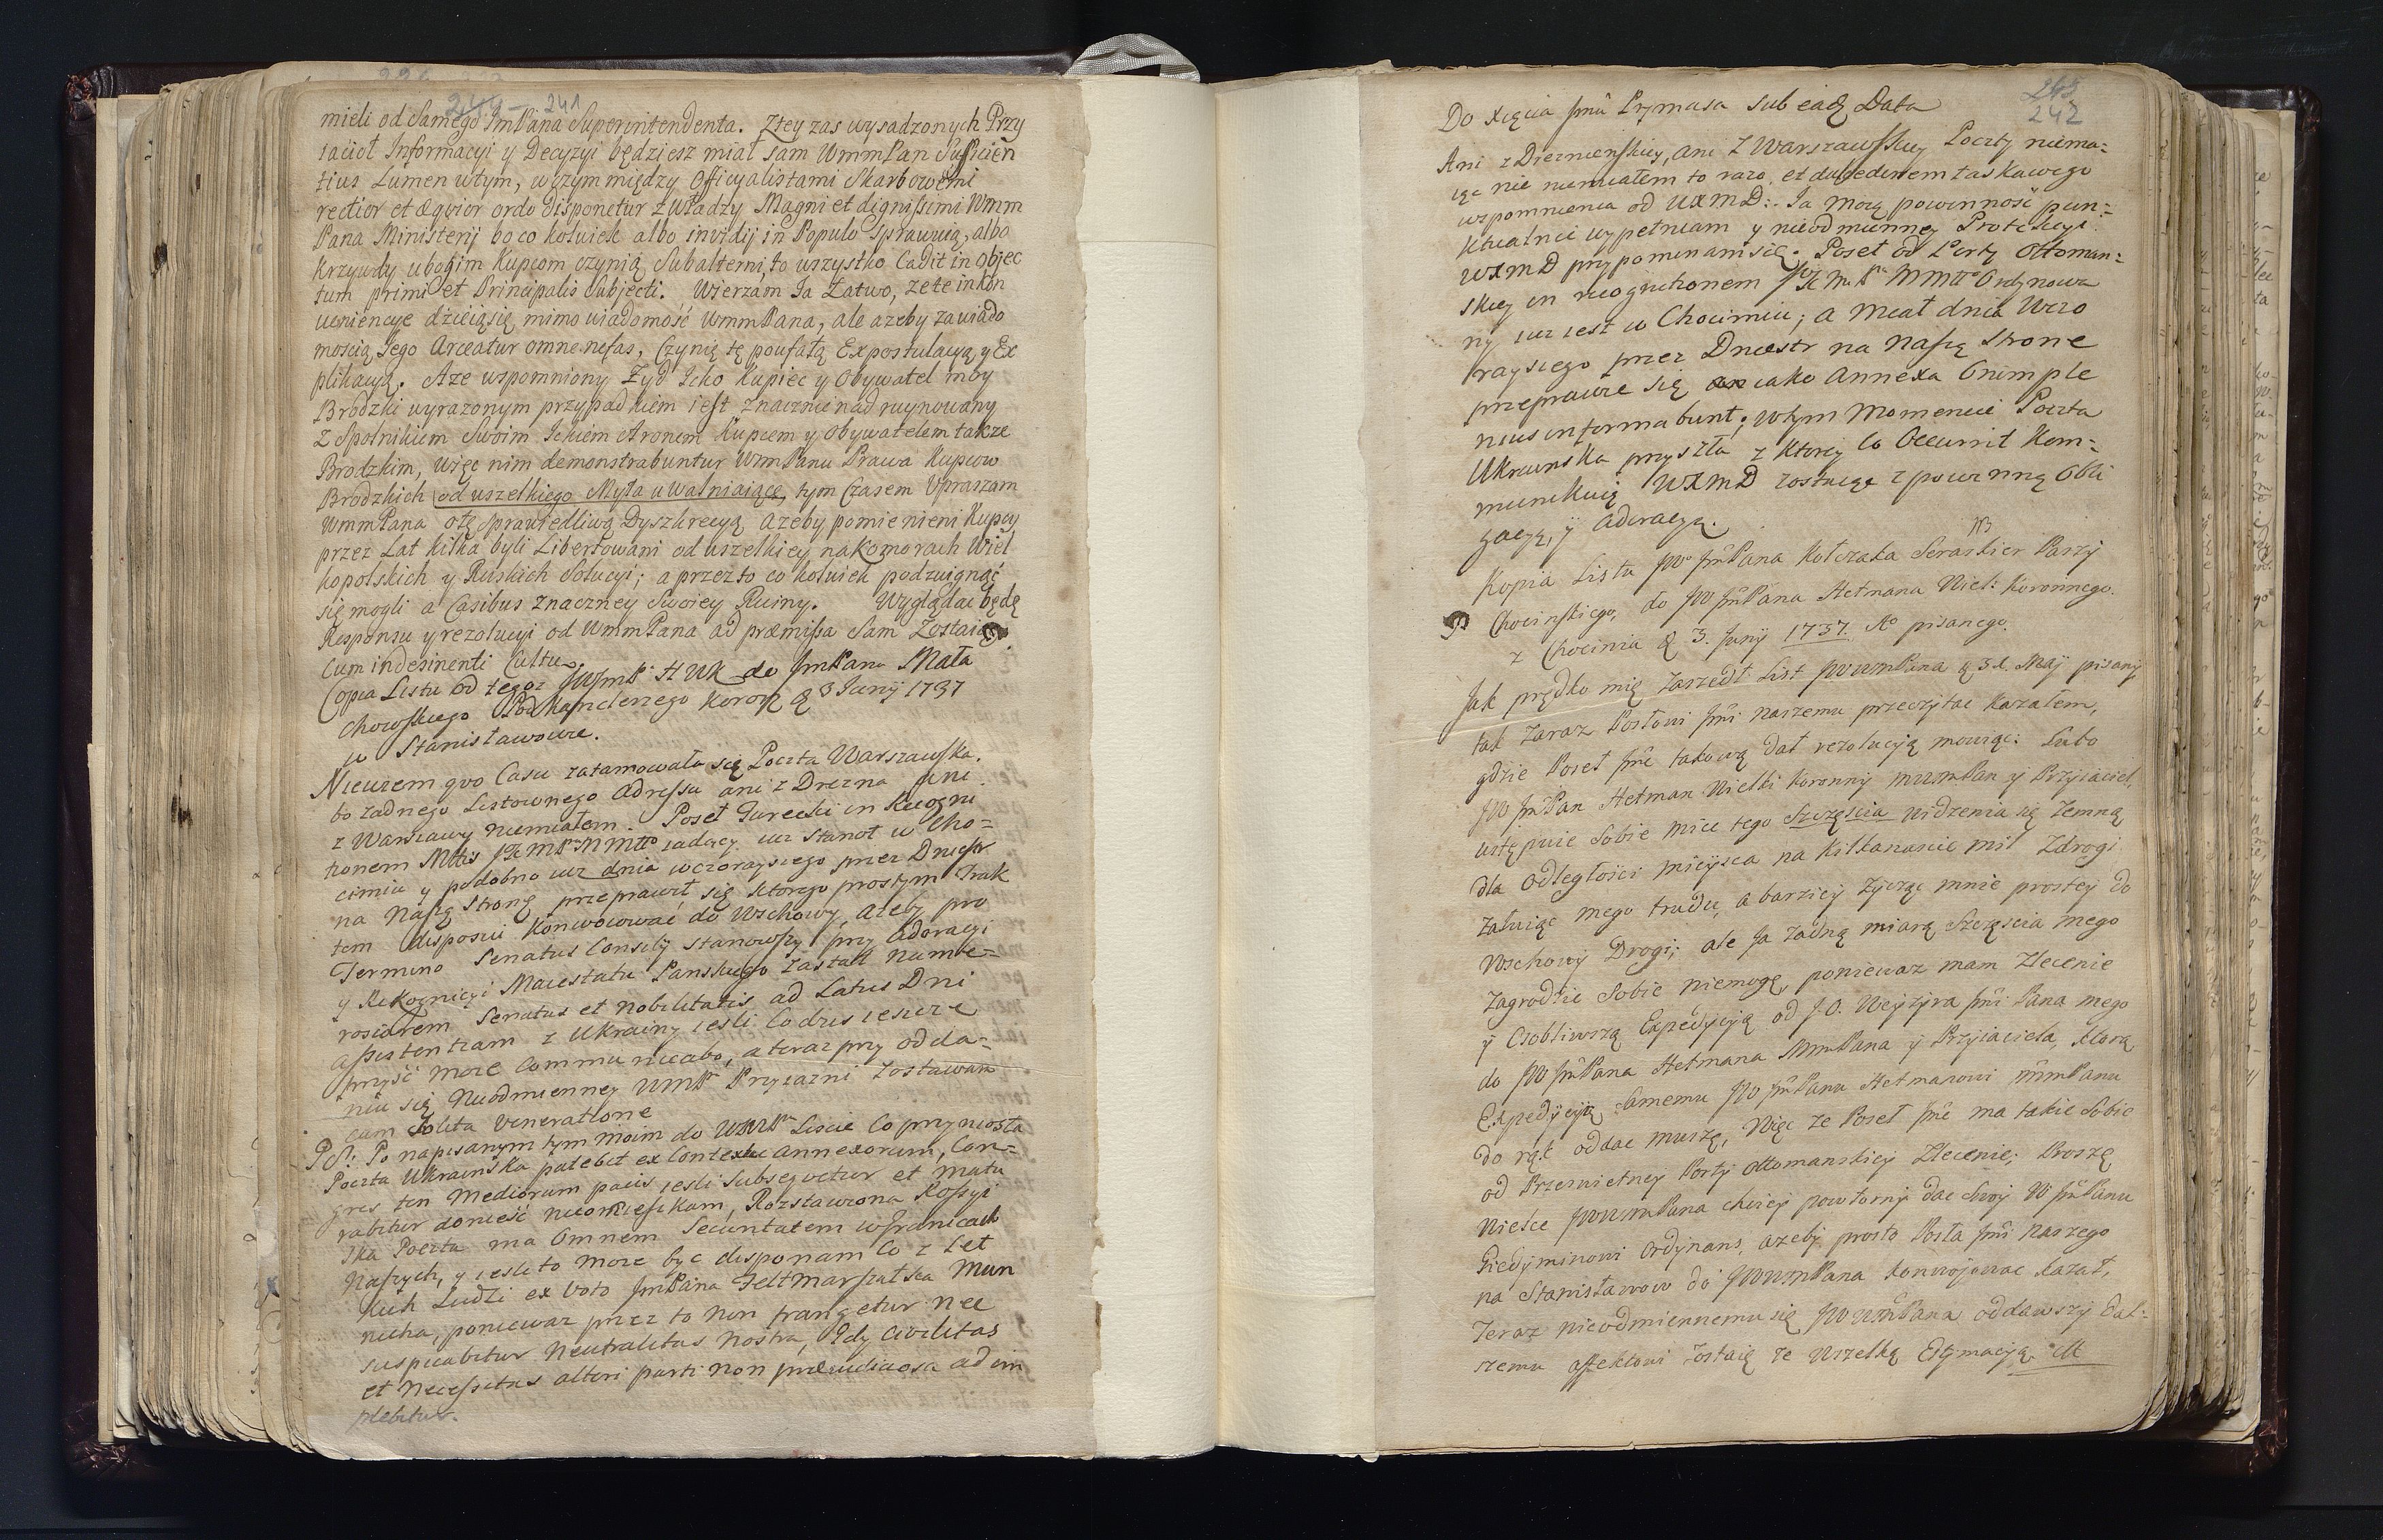 244 - 241
mieli od Samego JmPana Superintendenta. Ztey zas wysadzonych Przy
iaciół Informacyi y Decyzyi będziesz miał sam WmmPan Sufficien
tius Lumen wtym, wczym między Officyalistami Skarbowemi
rectior et æqvior ordo disponetur z Władzy Magni et dignissimi Wmm
Pana Ministerij bo co kolwiek albo invidij in Populo sprawuią, albo
krzywdy ubogim kupcom czynią Subalterni, to wszystko Cadit in objec
tum primi et Principalis Subjecti. Wierzam Ia Łatwo, ze te inkon
weniencye dzieią się mimo wiadomość WmmPana, ale azeby zawiado
moscią Jego Arceatur omne nefas, Czynię tę poufałą Expostulacyą y Ex
plikacyą. Aze wspomniony Zyd Icko Kupiec y Obywatel moy
Brodzki wyrazonym przypadkiem iest znacznie nadruynowany
z Spolnikiem Swoim Ickiem Aronem Kupcem y Obywatelem takze
Brodzkim, więc nim demonstrabuntur WmPanu Prawa Kupcow
Brodzkich od uszelkiego Myta uwalniaiące, tym Czasem Upraszam
WmmPana otę Sprawiedliwą Dyszkrecyą, azeby pomienieni Kupcy
przez Lat kilka byli Libertowani od uszelkiey na komorach Wiel
kopolskich y Ruskich Solucyi; a przez to co kolwiek podzwignąć
się mogli a Casibus znaczney Swoiey Ruiny. Wyglądac będę
Responsu y rezolucyi od WmmPana ad præmissa Sam Zostaię
Cum indesinenti Cultu
Copia Listu od tegoz JWJmP. H W K do JmPana Mała
chowskiego Podkanclerzego Koron. d 3 Junij 1737
w Stanisławowie.
Niewiem qvo Casu zatamowała się Poczta Warszawska.
bo zadnego Listownego Adressu ani z Drezna ani
z Warszawy niemiałem. Poseł Turecki in Recogni
tionem Mttis JKMPNMtto iadący iuz stanoł w Cho=
cimiu y podobno iuz dnia wczorayszego przez Dniestr
na Naszę Stronę przeprawił się ktorego prostym Trak
tem disposui konwoiować do Wschowy, azeby pro
Termino Senatus Consilij stanowszy przy Adoracyi
y Rekognicyi Maiestatu Panskiego zastał nume=
rosiorem Senatus et Nobilitatis ad Latus Dni
assistentiam z Ukrainy iesli co dzis ieszcze
przyść moze communicabo, a teraz przy odda=
niu się Nieodmienney WMP Przyiazni zostawam
cum solita Veneratione
PS: Po napisanym tym moim do WMP Liscie co przyniosła
Poczta Ukrainska patebit ex Contextu annexorum, Con=
gres ten Mediorum pacis iesli Subseqvetur et matu
rabitur doniesć nieomieszkam, Rozstawiona Rossyi
ska Poczta ma omnem Securitatem w Granicach
Naszych, y iesli to moze byc disponam co z Let
kich Ludzi ex Voto JmPana Feltmarszałska Mun
nicha, poniewaz przez to non frangetur nec
suspicabitur Neutralitas Nostra, Gdy Civilitas
et Necessitas alteri parti non præiudiciosa adim
plebitur.
242
Do Xięcia Jmci Prymasa sub eadę Data
Ani z Drezneńskiey, ani z Warszawskiey Poczty niema=
iąc nic niemiałem to razo, et dulcedinem łaskawego
wspomnienia od WXMD: Ja moią powinność pun=
ktualnie wypełniam y nieodmienney Protekcyi
WXMD przypominam się. Poseł od Porty Ottoman=
skiey in recognitionem JKMP NMtto Ordynowa
ny iuz iest w Chocimiu; a miał dnia Wczo
rayszego przez Dniestr na Naszę Stronę
przeprawic się iako Annexa Gnimple
nius informabunt; wtym Momencie Poczta
Ukrainska przyszła z ktorey co Occurrit Kom=
munikuię WXMD zostaiąc z powinną Obli
gacyą, y Adoracyą.
NB
Kopia Listu JW JmPana Kołczaka Seraskier Paszy
Chocimskiego, do JW JmPana Hetmana Wiel: Koronnego.
z Chocimia d 3. Junij 1737. Ao pisanego.
Jak prędko mię zaszedł List JWWmPana d 31. Maij pisany
tak zaraz Posłowi Jmci naszemu przeczytac kazałem,
gdzie Poseł Jmć takową dał rezolucyją mowiąc: Lubo
JW JmPan Hetman Wielki Koronny MWmPan y Przyiaciel,
ustępuie Sobie miec tego Szczęscia widzenia się zemną
dla odległości mieysca na kilkanascie mil Zdrogi
załuiąc mego trudu, a barziey życząc mnie prostey do
Wschowy Drogi; ale Ja żadną miarą Szczęscia mego
Zagrodzic Sobie niemogę, poniewaz mam Zlecenie
y Osobliwszą Expedycyją od J.O. Wezyra Jmci Pana mego
do JW JmPana Hetmana MmPana y Przyiaciela, ktorą
Expedycyją Samemu JW JmPanu Hetmanowi MmPanu
do rąk oddac muszę, Więc ze Poseł Jmć ma takie Sobie
od Przeswietney Porty Ottomanskiey Zlecenie; Proszę
Wielce JWWmPana chciey powtorny dac Swoy W JmPanu
Giedyminowi Ordynans, azeby prosto Posła Jmci naszego
na Stanisławow do JWWmPana konwojowac kazał,
Teraz nieodmiennemu się JWWmPana oddawszy dal=
szemu affektowi zostaię ze Wszelką Estymacyją. &c